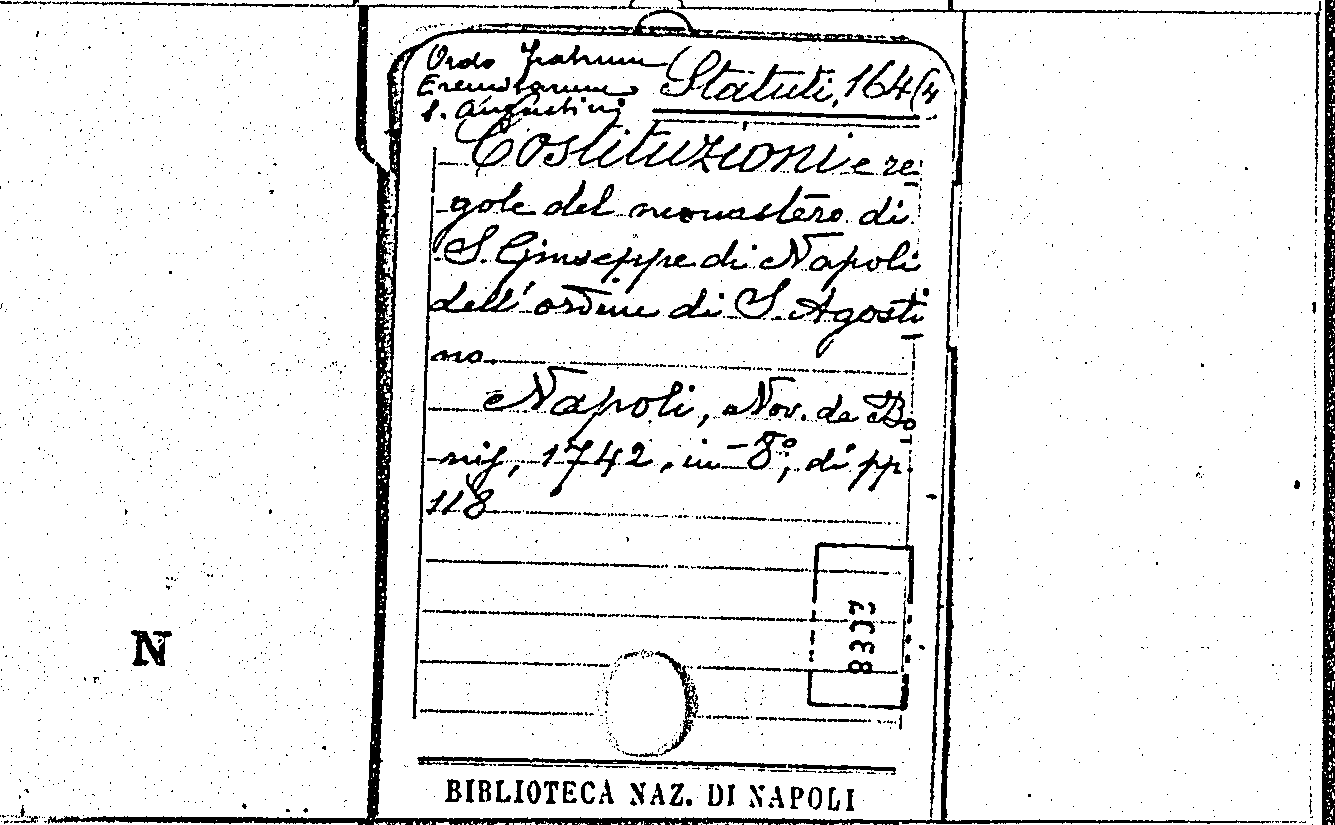 Ordo Fratrum
Eremitarum
S. Augustini
Statuti, 164(4
Costituzioni e re-
gole del monastero di
S. Giuseppe di Napoli
dell'ordine di S. Agosti-
no.
Napoli, Nov. de Bo-
nis, 1742, in-8°, di pp.
118
N
BIBLIOTECA NAZ. DI NAPOLI